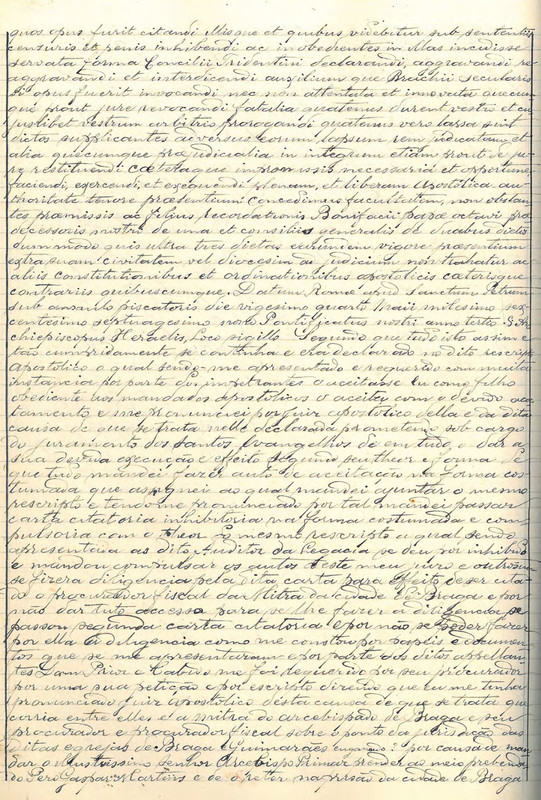 quos opus fuerit citandi illisque et quibus videbitur sub sententiis
censuris et penis inhibendi ac inobedientes in illas incidisse
servata forma Concilii Tridentini declarandi, aggravandi re-
aggravandi et interdicendi auxilium que brachii secularis
si opus fuerit invocandi nec non attentata et innovata quecun-
que prout jure revocandi fatalia quatenus durent vestro et cu-
juslibet vestrum arbitrio prorogandi quatenus vero lapsa sint
dictos supplicantes adversus eorum lapsum rem judicatam et
alia quecumque prajudicalia in integrum etiam prout de ju-
re restituendi cateraque in promissis necessaria et opportuna
faciendi, exercendi, et exequendi plenam, et liberam Apostolica au-
thoritate tenore prasentium concedimus facultatem, non obstan-
tes pramissis ac felicis recordationis Bonifacii papa octavi pra-
decessoris nostri de una et consilii generalis de duabus dietis
dummodo quis ultra tres dietas earumdem vigore prasentium
extra suam civitatem vel diocesim ad judicium non trahatur ac
aliis constitutionibus et ordinationibus apostolicis caterisque
contrariis quibuscumque, Datum Rome apud Sanctum Petrum
sub annulo piscatoris die vigesimo quarto Maii milesimo sex-
centesimo septuagesimo nono Pontificatus nostri anno tertio
chiepiscopus Heraclis, Loco sigilli Segundo que tudo isto assim e
tão cumpridamente se continha e era declarado no dito rescripto
apostolico o qual sendo-me apresentado e requerido com muita
instancia por parte dos impetrantes o aceitasse eu como filho
obediente aos mandados apostolicos o aceitei com o devido aca-
tamento e me pronunciei por juiz apostolico della e da dita
causa de que se trata nelle declarada prometendo sob cargo
do juramento dos santos evangelhos de em tudo o dar a
sua devida execução e effeito segundo seu theor e forma e
que tudo mandei fazer auto de aceitação na forma cos-
tumada que assignei ao qual mandei ajuntar o mesmo
rescripto e tendo-me pronunciado por tal mandei passar
carta citatoria inhibitoria na forma costumada e com-
pulsoria com o theor do mesmo rescripto a qual sendo
apresentada ao dito Auditor da Legacia se deu por inhibido
e mandou compulsar os autos deste meu juizo e outrosim
se fizera diligencia pela dita carta para effeito de ser cita-
do o procurador fiscal da Mitra da cidade de Braga e por
não dar tuto accesso para se lhe fazer a diligencia se
passou segunda carta citatoria e por não se poder fazer
por ella a diligencia como me constou por e documen-
tos que se me apresentaram e por parte dos ditos appellan-
tes Dom Prior e Cabido me foi requerido por seu procurador
por uma sua petição e por escripto dizendo que eu me tinha
pronunciado juiz apostolico desta causa de que se trata que
corria entre elles e a mitra do arcebispado de Braga e seu
procurador e procurador fiscal sobre o ponto da jurisdição das
ditas egrejas de Braga e Guimarães por causa de man-
dar o illustrissimo senhor Arcebispo Primaz prender ao meio prebenda-
do Pero Gaspar Martins e de o reter na prisão da cidade de Braga